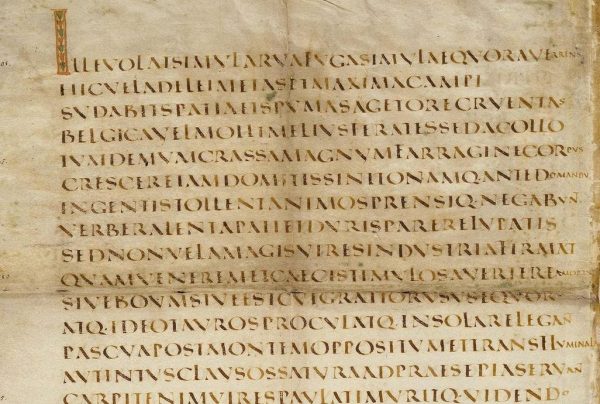 ILLEVOLATSIMVLARVAFVGASIMVLAEQVORAVERRENS
HICVELADELEIMETASETMAXIMACAMPI
SVDABITSPATIAETSPVMASAGETORECRVENTAS
BELGICAVELMOLLIMELIVSFERATESSEDACOLLO
TVMDEMVMCRASSAMAGNVMFARRAGINECORPVS
CRESCEREIAMDOMITISSINITONAMQANTEDOMANDV
INGENTISTOLLENTANIMOSPRENSIQ·NEGABVÑ
VERBERALENTAPATIETDVRISPARERELVPATIS
SEDNONVLLAMAGISVIRESINDVSTRIAFIRMAT
QVAMVENEREMETCAECISTIMVLOSAVERTEREAMORIS
SIVEBOVMSIVEESTCVIGRATIORVSVSEQVOR
ATQ·IDEOTAVROSPROCVLATQ·INSOLARELEGAÑ
PASCVAPOSTMONTEMOPPOSITVMETTRANSFLVMINALA
AVTINTVSCLAVSOSSATVRAADPRAESEPIASERVAÑ
CARPITENIMVIRESPAVLATIMVRITQ·VIDENDO